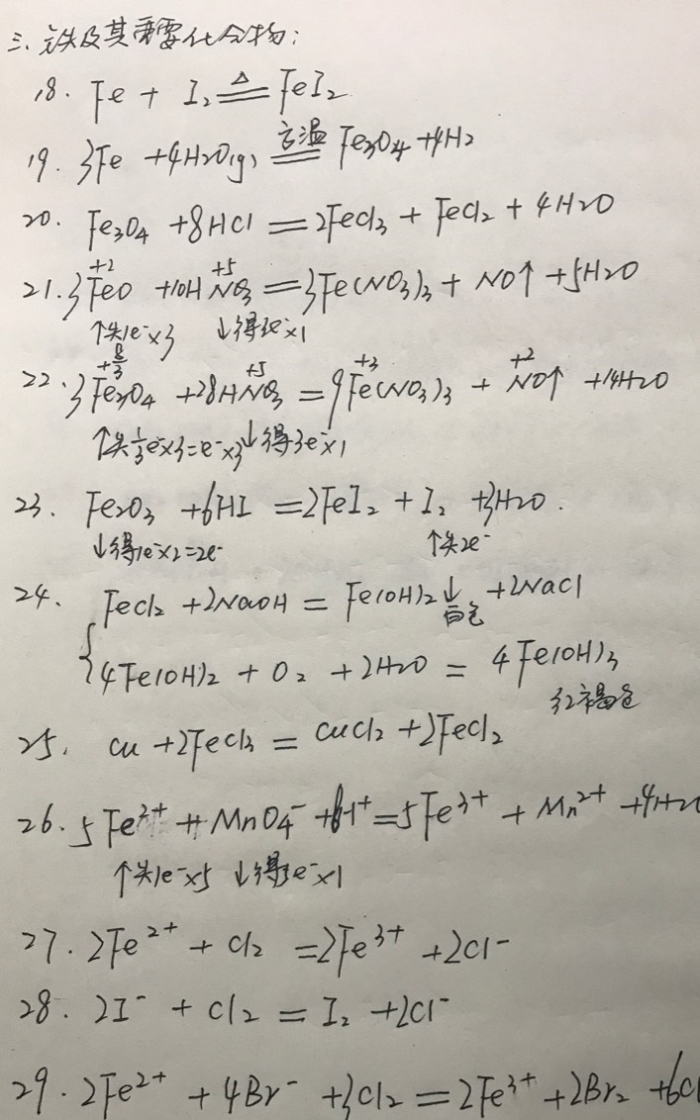 三.铁及其重要化合物:
18. Fe + I₂ =△= FeI₂
19. 3Fe + 4H₂O(g) =高温= Fe₃O₄ + 4H₂
20. Fe₃O₄ + 8HCl = 2FeCl₃ + FeCl₂ + 4H₂O
+2 +5
21. 3FeO + 10HNO₃ = 3Fe(NO₃)₃ + NO↑ + 5H₂O
↑失1e⁻×3 ↓得3e⁻×1
+8/3 +5 +3 +2
22. 3Fe₃O₄ + 28HNO₃ = 9Fe(NO₃)₃ + NO↑ + 14H₂O
↑失1/3e⁻×3=e⁻×3 ↓得3e⁻×1
23. Fe₂O₃ + 6HI = 2FeI₂ + I₂ + 3H₂O.
↓得1e⁻×2=2e⁻ ↑失2e⁻
24. FeCl₂ + 2NaOH = Fe(OH)₂↓ + 2NaCl
白色
4Fe(OH)₂ + O₂ + 2H₂O = 4Fe(OH)₃
红褐色
25. Cu + 2FeCl₃ = CuCl₂ + 2FeCl₂
26. 5Fe²⁺ + MnO₄⁻ + 8H⁺ = 5Fe³⁺ + Mn²⁺ + 4H₂O
↑失1e⁻×5 ↓得5e⁻×1
27. 2Fe²⁺ + Cl₂ = 2Fe³⁺ + 2Cl⁻
28. 2I⁻ + Cl₂ = I₂ + 2Cl⁻
29. 2Fe²⁺ + 4Br⁻ + 3Cl₂ = 2Fe³⁺ + 2Br₂ + 6Cl